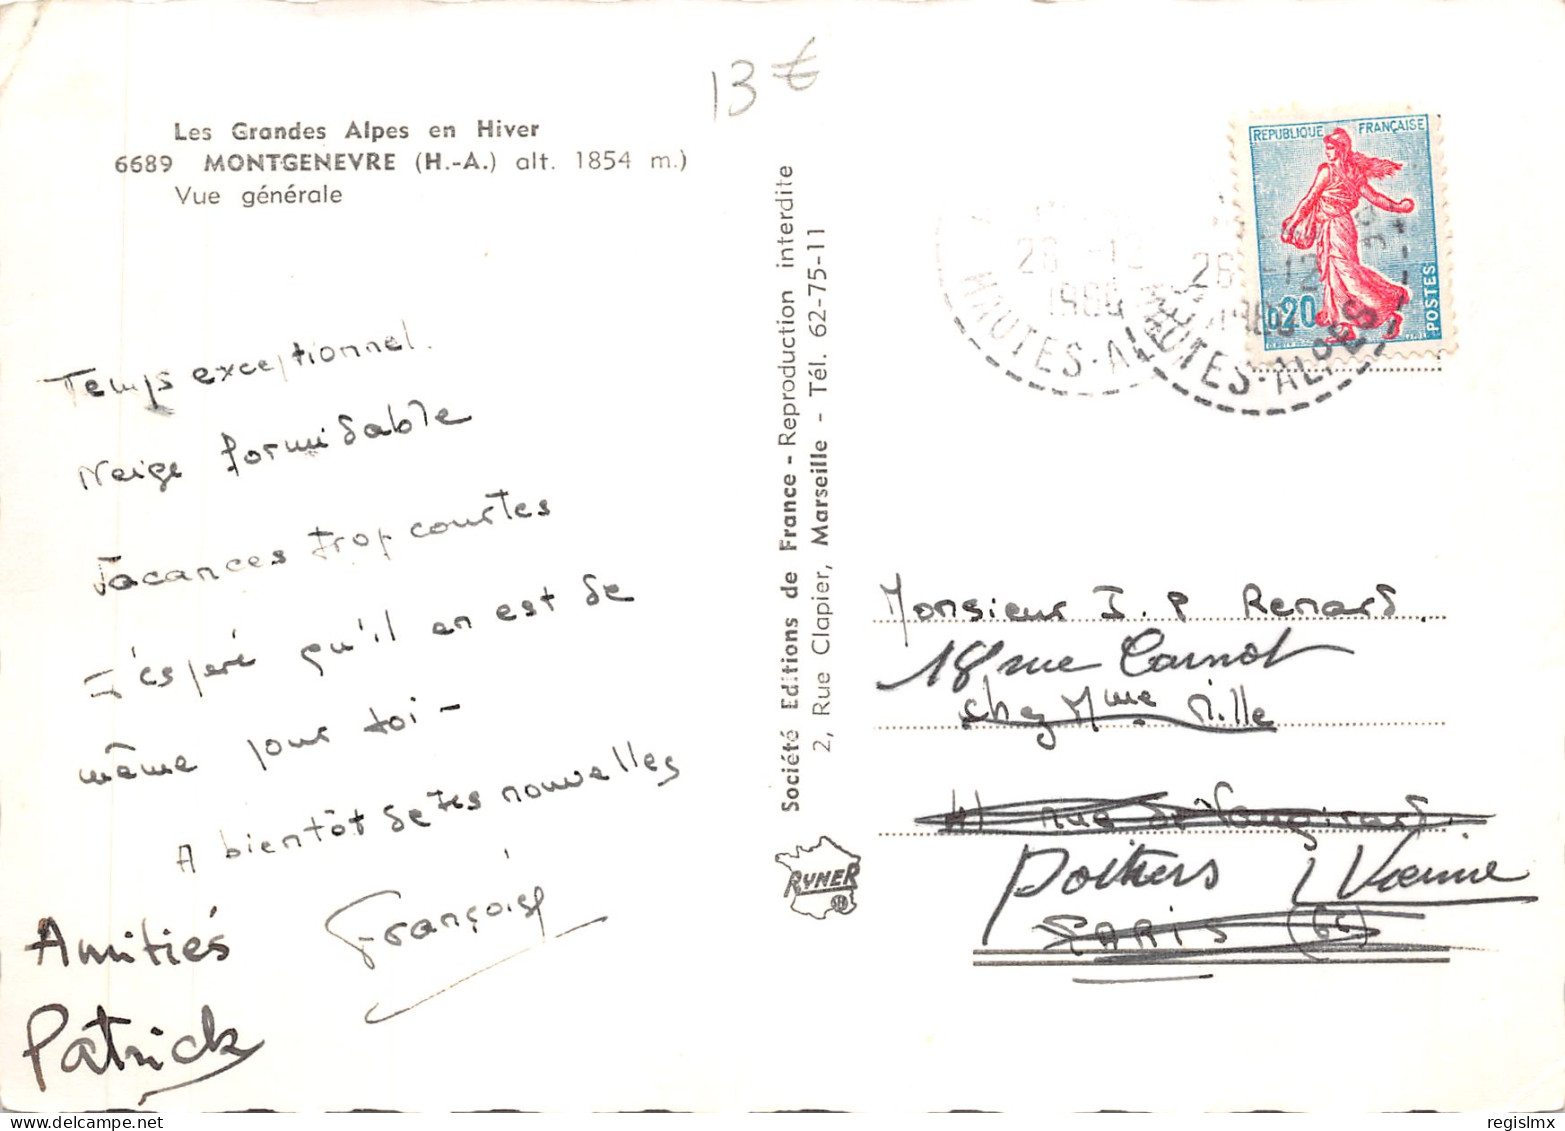 13 €
Les Grandes Alpes en Hiver
6689 MONTGENEVRE (H.-A.) alt. 1854 m.)
Vue générale
Temps exceptionnel.
Neige formidable
Vacances trop courtes
J'espère qu'il en est de
même pour toi -
A bientôt de tes nouvelles
Françoise
Amitiés
Patrick
Société Editions de France - Reproduction interdite
2, Rue Clapier, Marseille - Tél. 62-75-11
RYNER
REPUBLIQUE FRANÇAISE
0,20
POSTES
26 -12
1960
HAUTES-AL
26 -12
1960
HAUTES-ALPES
Monsieur J. P Renard.
18 rue Carnot
chez Mme Mille
41 rue de Vaugirard.
Poitiers Vienne
PARIS (6e)
delcampe.net
regislmx